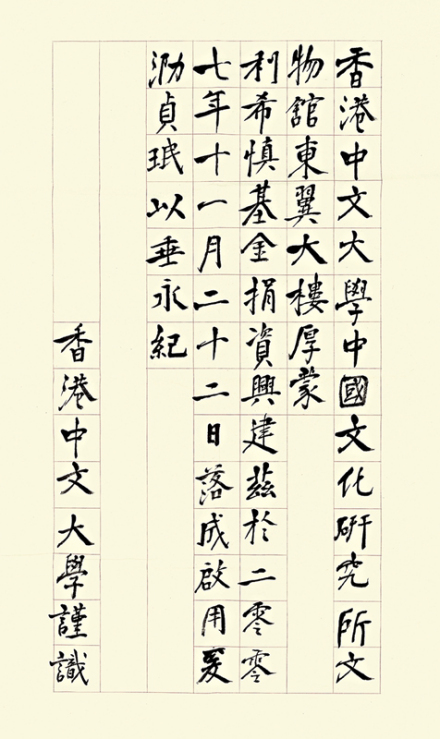 香港中文大學中國文化研究所文
物館東翼大樓厚蒙
利希慎基金捐資興建茲於二零零
七年十一月二十二日落成啟用爰
泐貞珉以垂永紀
香港中文大學謹識